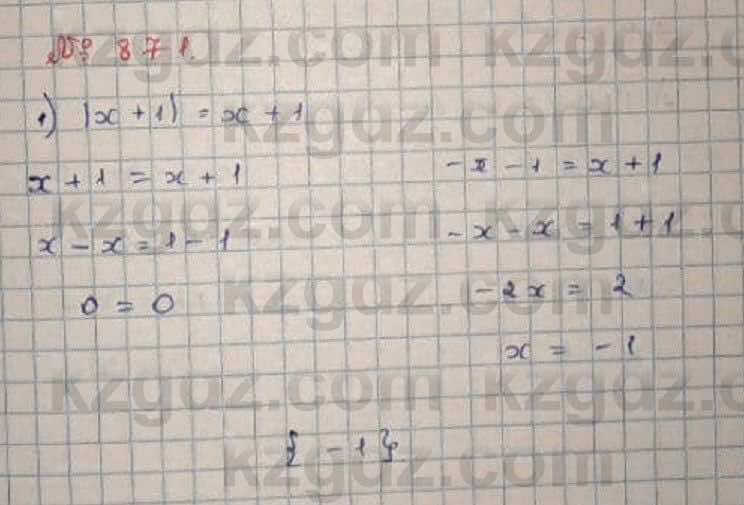 № 871.
1) |x + 1| = x + 1
x + 1 = x + 1
x - x = 1 - 1
0 = 0
- x - 1 = x + 1
- x - x = 1 + 1
- 2x = 2
x = - 1
{ - 1 }
kzgdz.com kzgdz.com
kzgdz.com
kzgdz.com kzgdz.com
kzgdz.com
kzgdz.com kzgdz.com
kzgdz.com